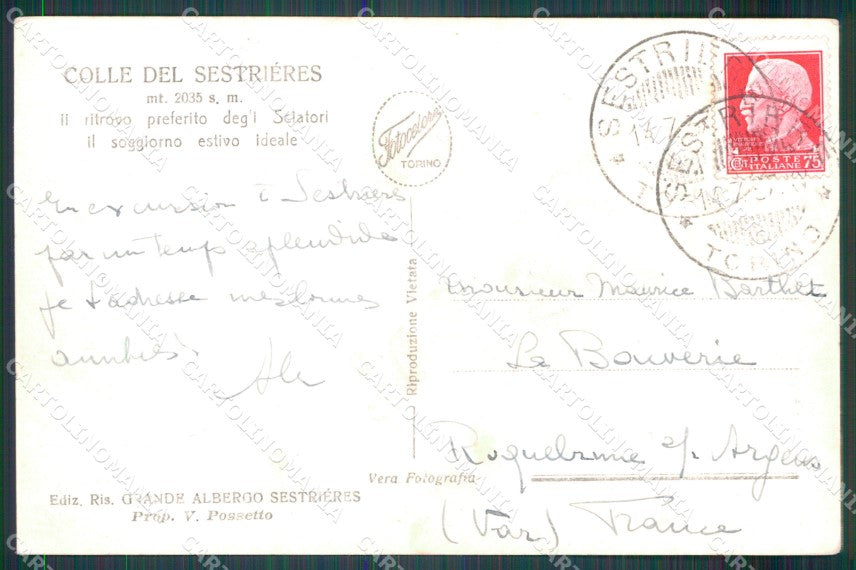 COLLE DEL SESTRIÉRES
mt. 2035 s. m.
il ritrovo preferito degl'i Sciatori
il soggiorno estivo ideale
Fotocelere
TORINO
SESTRIERES
TORINO
POSTE
ITALIANE
75
En excursion à Sestrière
par un temps splendide
je t'adresse mes bonnes
amitiés.
Riproduzione Vietata
Monsieur Maurice Barthet
La Bouverie
Roquebrune s/ Argens
(Var) France
Vera Fotografia
Ediz. Ris. GRANDE ALBERGO SESTRIÉRES
Prop. V. Possetto
CARTOLINOMANIA